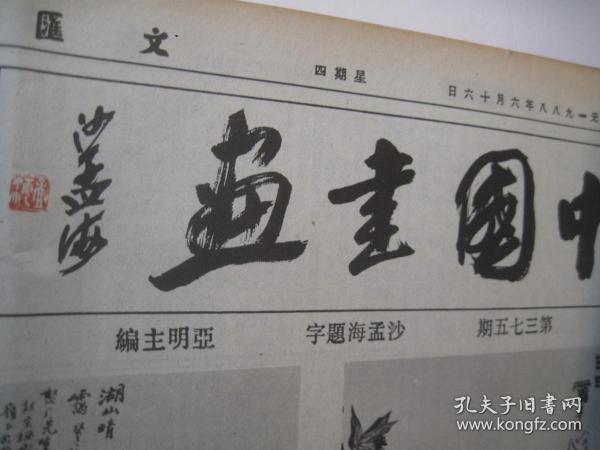 元一九八八年六月十六日 星期四 文匯
中國書畫
沙孟海
第三七五期 沙孟海題字 亞明主編
湖山晴
靄
孔夫子旧书网
www.kongfz.com